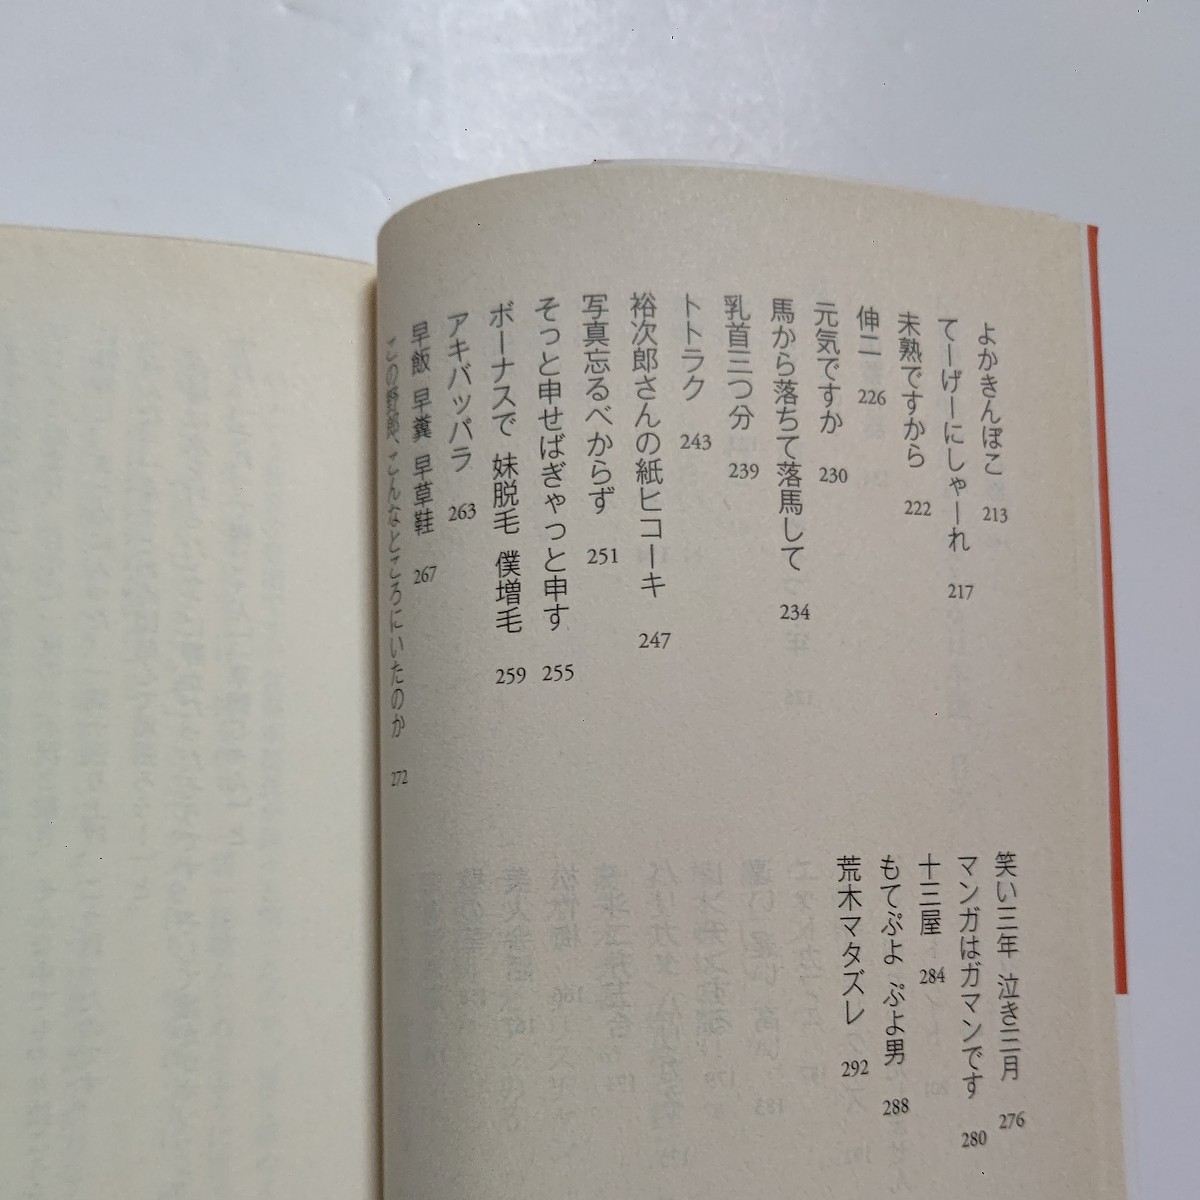 よかきんぽこ 213
てーげーにしゃーれ 217
未熟ですから 222
伸二 226
元気ですか 230
馬から落ちて落馬して 234
乳首三つ分 239
トトラク 243
裕次郎さんの紙ヒコーキ 247
写真忘るべからず 251
そっと申せばぎゃっと申す 255
ボーナスで 妹脱毛 僕増毛 259
アキバッパラ 263
早飯 早糞 早草鞋 267
この野郎、こんなところにいたのか 272
笑い三年 泣き三月 276
マンガはガマンです 280
十三屋 284
もてぷよ ぷよ男 288
荒木マタズレ 292